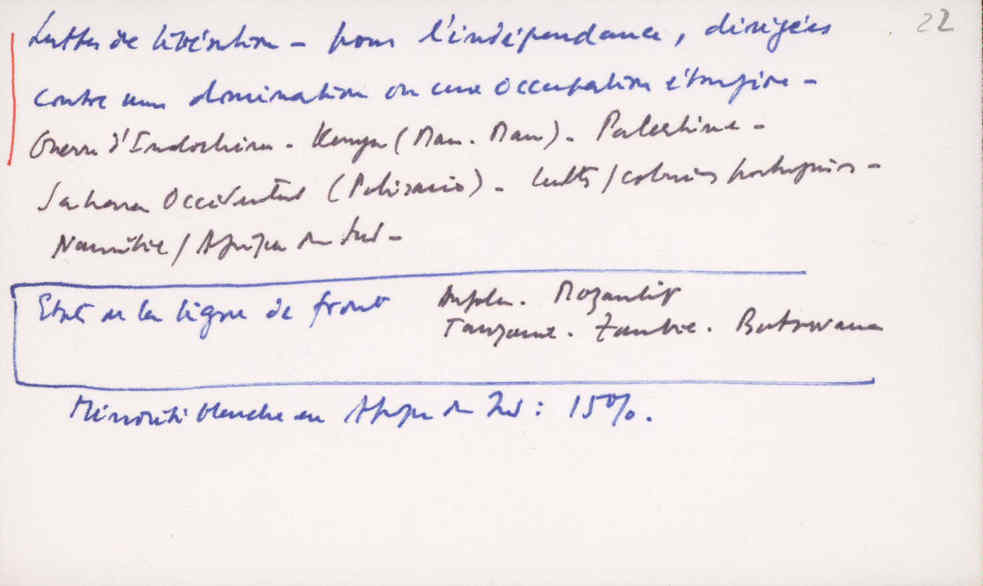 22
Luttes de libération – pour l'indépendance, dirigées
contre une domination ou une occupation étrangère –
Guerre d'Indochine – Kenya (Mau. Mau). Palestine –
Sahara Occidental (Polisario) – Luttes / colonies portugaises –
Namibie / Afrique du Sud –
Etats de la ligne de front Angola. Mozambique
Tanzanie. Zambie. Botswana
Minorité blanche en Afrique du Sud : 15%.